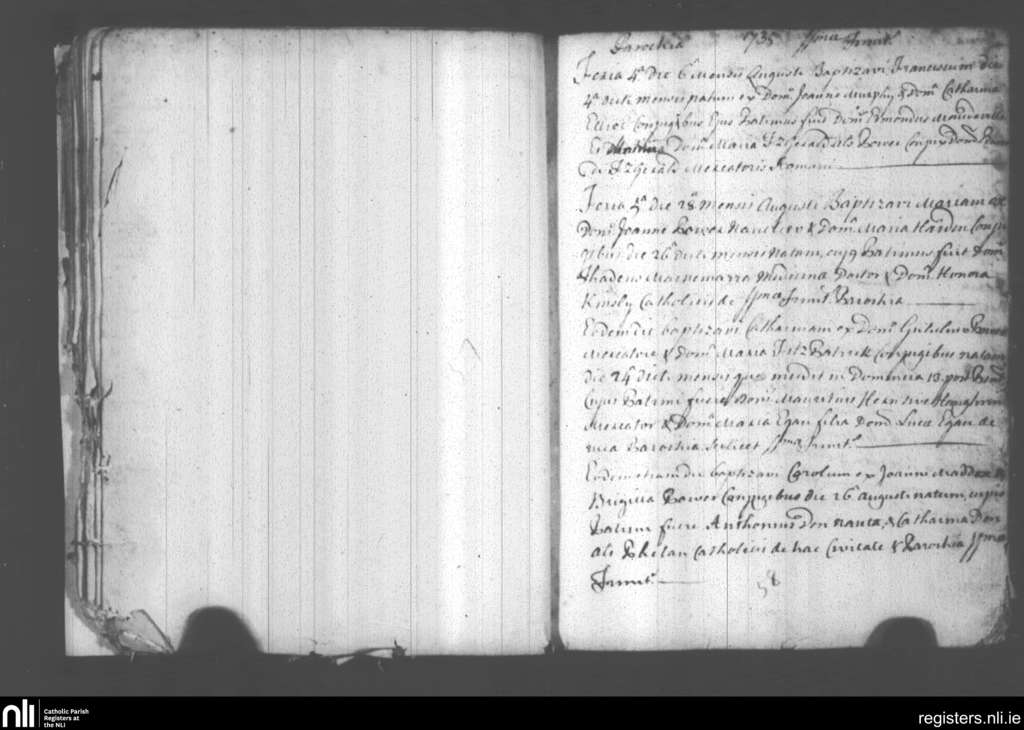 Parochia 1735 SSmæ Trinit.
Feria 4ª Die 6ª Mensis Augusti Baptizavi Franciscum die
4ª dicti mensis natum ex Dom. Joanne Murphy & Dom. Catharina
Conjugibus Ejus Patrinus fuit Dom. Edmondus Mandeville
Et Dom. Maria FzGerald als Power Conjux Domi
di FzGerald Mercatoris Romani
Feria 5ª Die 28ª Mensis Augusti Baptizavi Mariam ex
Dom. Joanne Power & Dom. Maria Harden Conju
gibus die 26ª dicti mensis natam, cujus Patrinus fuit Dom.
Thadeus Macnemarra Medicinæ Doctor & Dom. Honora
Catholicis de SSmæ Trinit. Parochia
Eodem die baptizavi Catharinam ex Dom. Gulielmo Power
Mercatore & Dom. Maria Fitz Patrick Conjugibus natam
die 24ª dicti mensis quæ incidit in Dominica 13 post
Cujus Patrini fuere Dom. Mauritius
Mercator & Dom. Maria Egan filia Dom. Lucæ Egan de
mea Parochia scilicet SSmæ Trinit.
Eodem etiam die baptizavi Carolum ex Joanne Maddox &
Brigitta Power Conjugibus die 26ª Augusti natum, cujus
Patrini fuere Anthonius Don nauta, & Catharina Don
als Phelan Catholicis de hac Civitate & Parochia SSmæ
Trinit.
58
nli
Catholic Parish
Registers at
the NLI
registers.nli.ie